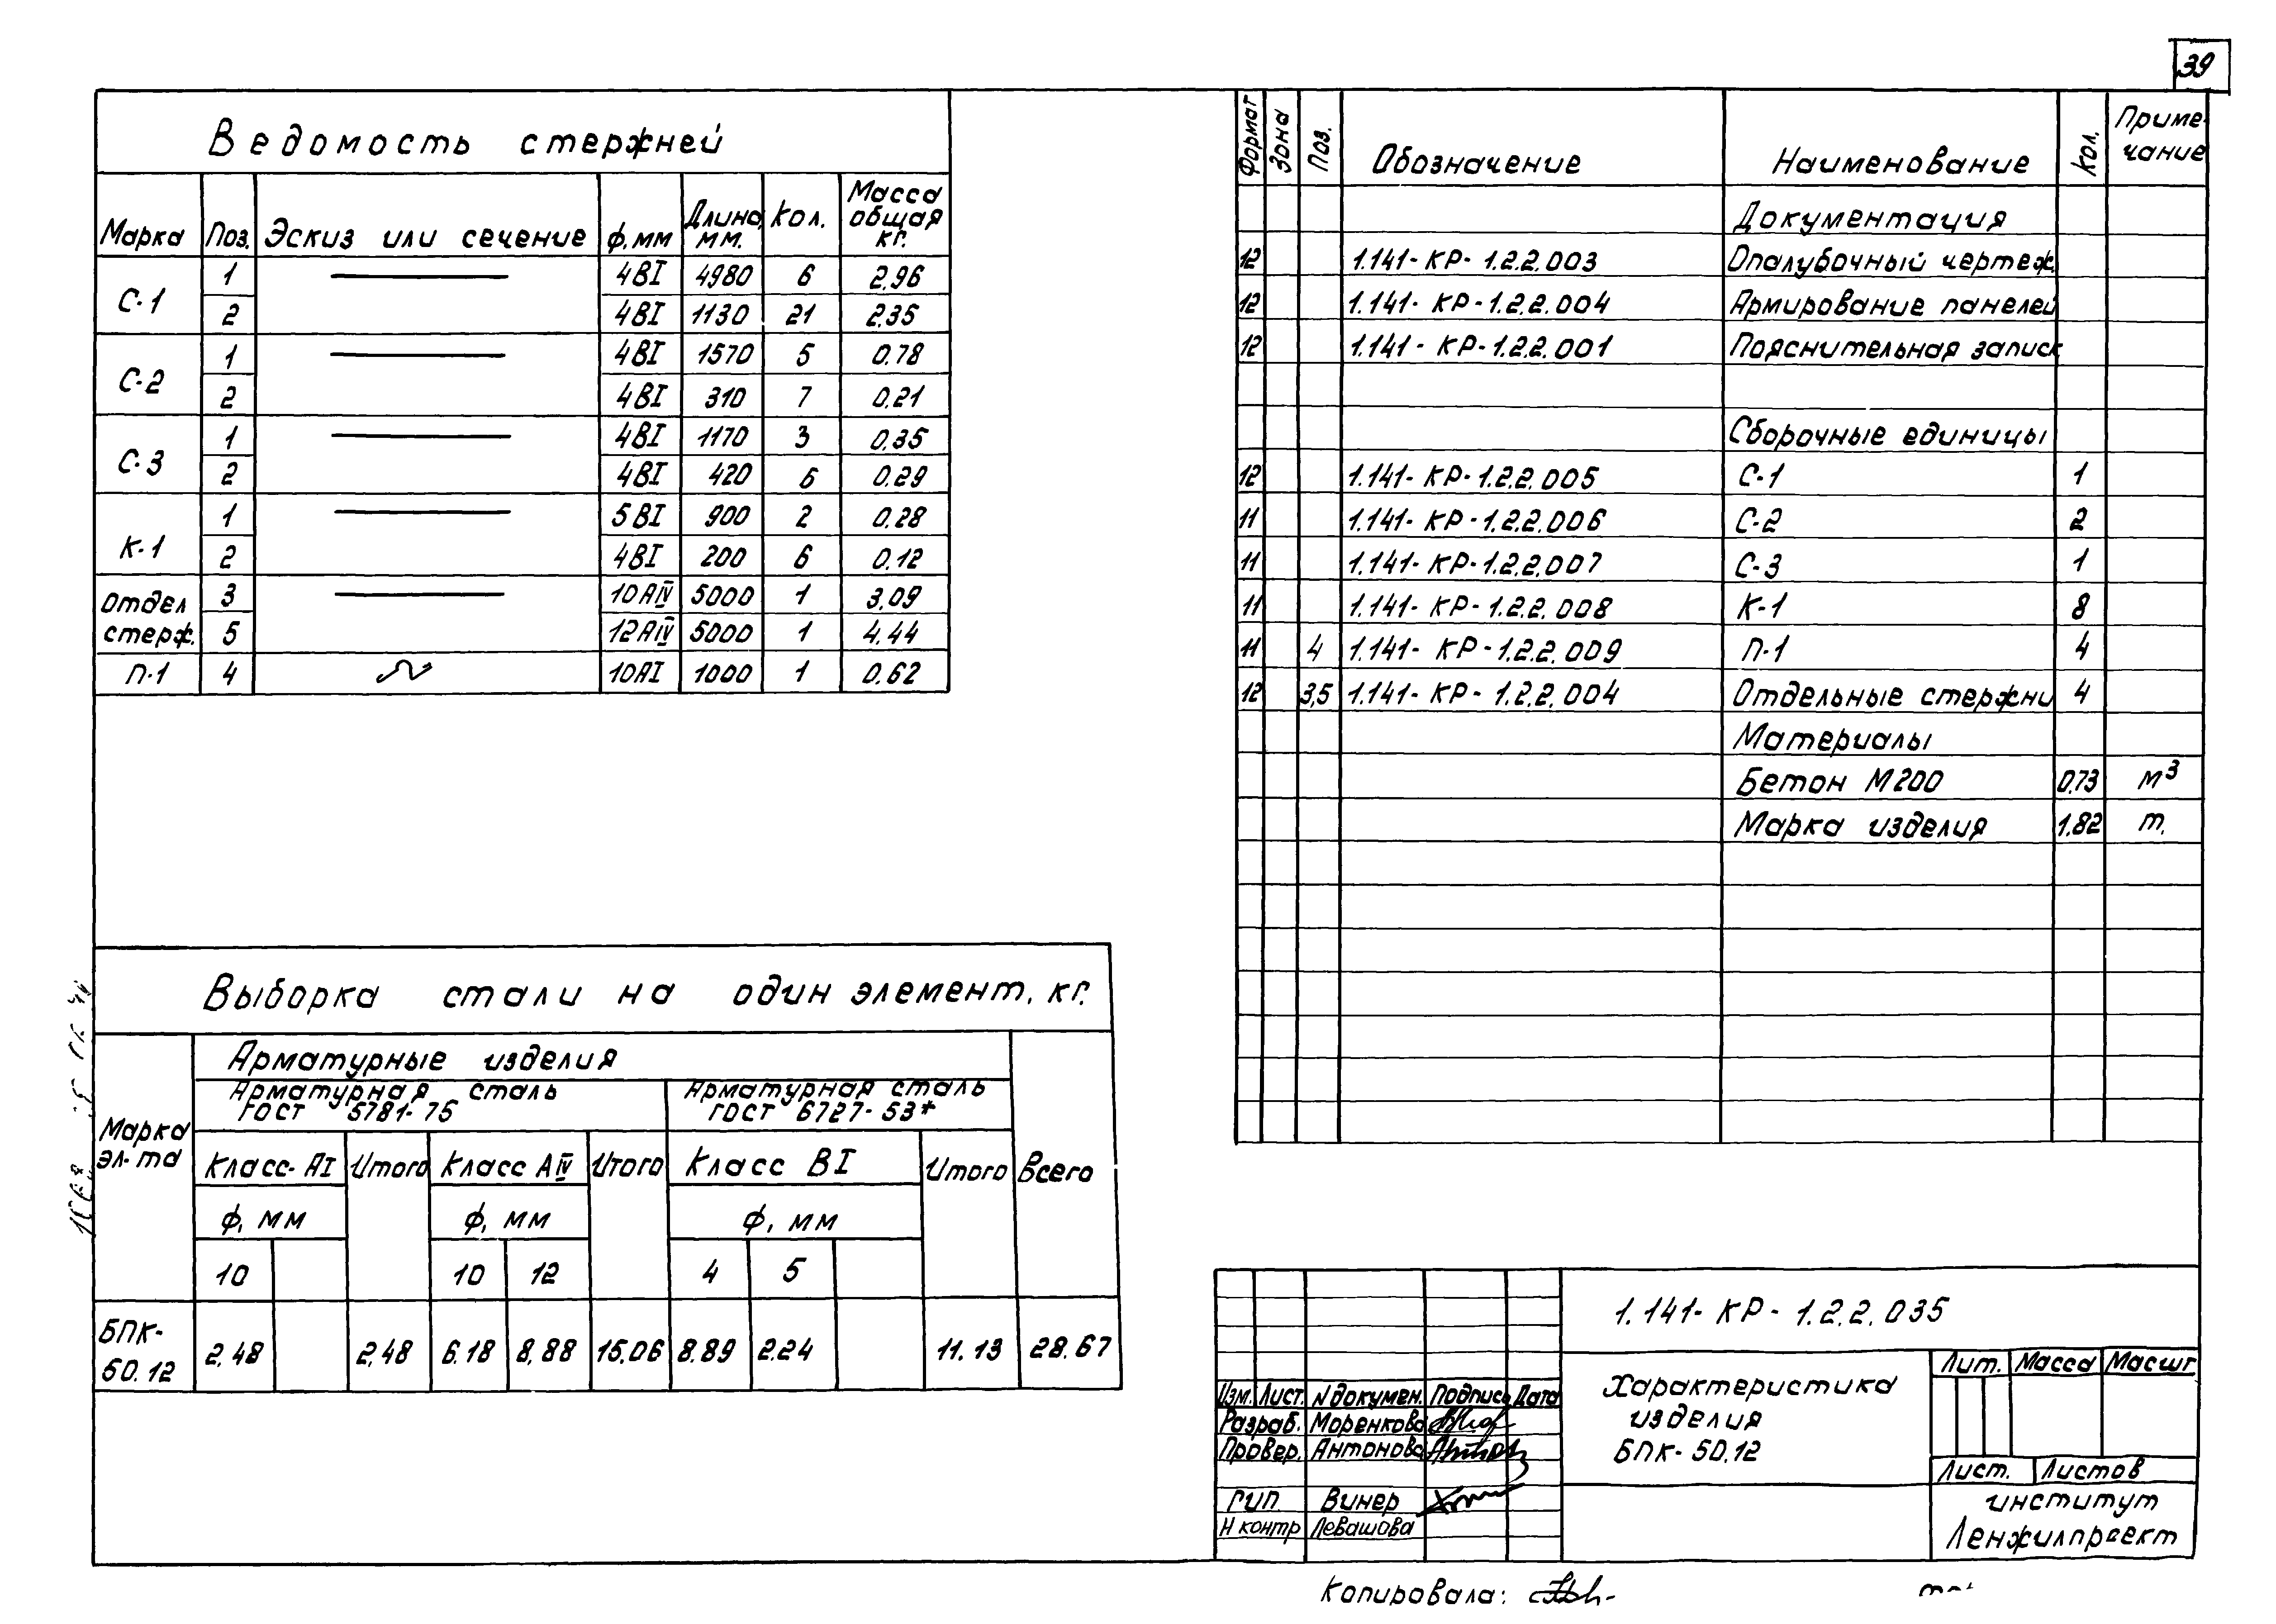 39
Ведомость стержней
Марка Поз. Эскиз или сечение ф,мм Длина, мм. Кол. Масса общая кг.
С-1 1 4ВI 4980 6 2,96
2 4ВI 1130 21 2,35
С-2 1 4ВI 1570 5 0,78
2 4ВI 310 7 0,21
С-3 1 4ВI 1170 3 0,35
2 4ВI 420 6 0,29
К-1 1 5ВI 900 2 0,28
2 4ВI 200 6 0,12
Отдел стерж. 3 10АIV 5000 1 3,09
5 12АIV 5000 1 4.44
П-1 4 10АI 1000 1 0.62
Формат Зона Поз. Обозначение Наименование Кол. Приме-чание
Документация
12 1.141-КР-1.2.2.003 Опалубочный чертеж
12 1.141-КР-1.2.2.004 Армирование панелей
12 1.141-КР-1.2.2.001 Пояснительная записк
Сборочные единицы
12 1.141-КР-1.2.2.005 С-1 1
11 1.141-КР-1.2.2.006 С-2 2
11 1.141-КР-1.2.2.007 С-3 1
11 1.141-КР-1.2.2.008 К-1 8
11 4 1.141-КР-1.2.2.009 П-1 4
12 3,5 1.141-КР-1.2.2.004 Отдельные стержни 4
Материалы
Бетон М200 0,73 м³
Марка изделия 1.82 т.
Выборка стали на один элемент, кг.
Марка эл-та
Арматурные изделия
Арматурная сталь ГОСТ 5781-75 Арматурная сталь ГОСТ 6727-53*
Класс-АI Итого Класс АIV Итого Класс ВI Итого Всего
ф, мм ф, мм ф, мм
10 10 12 4 5
БПК-50.12 2,48 2,48 6.18 8,88 15,06 8.89 2.24 11.13 28.67
1.141-КР-1.2.2.035
Характеристика
изделия
БПК-50.12
Лит. Масса Масшт
Лист. Листов
институт
Ленжилпроект
Изм. Лист. N докумен. Подпись Дата
Разраб. Моренкова
Провер. Антонова
ГИП Винер
Н контр Левашова
Копировала: